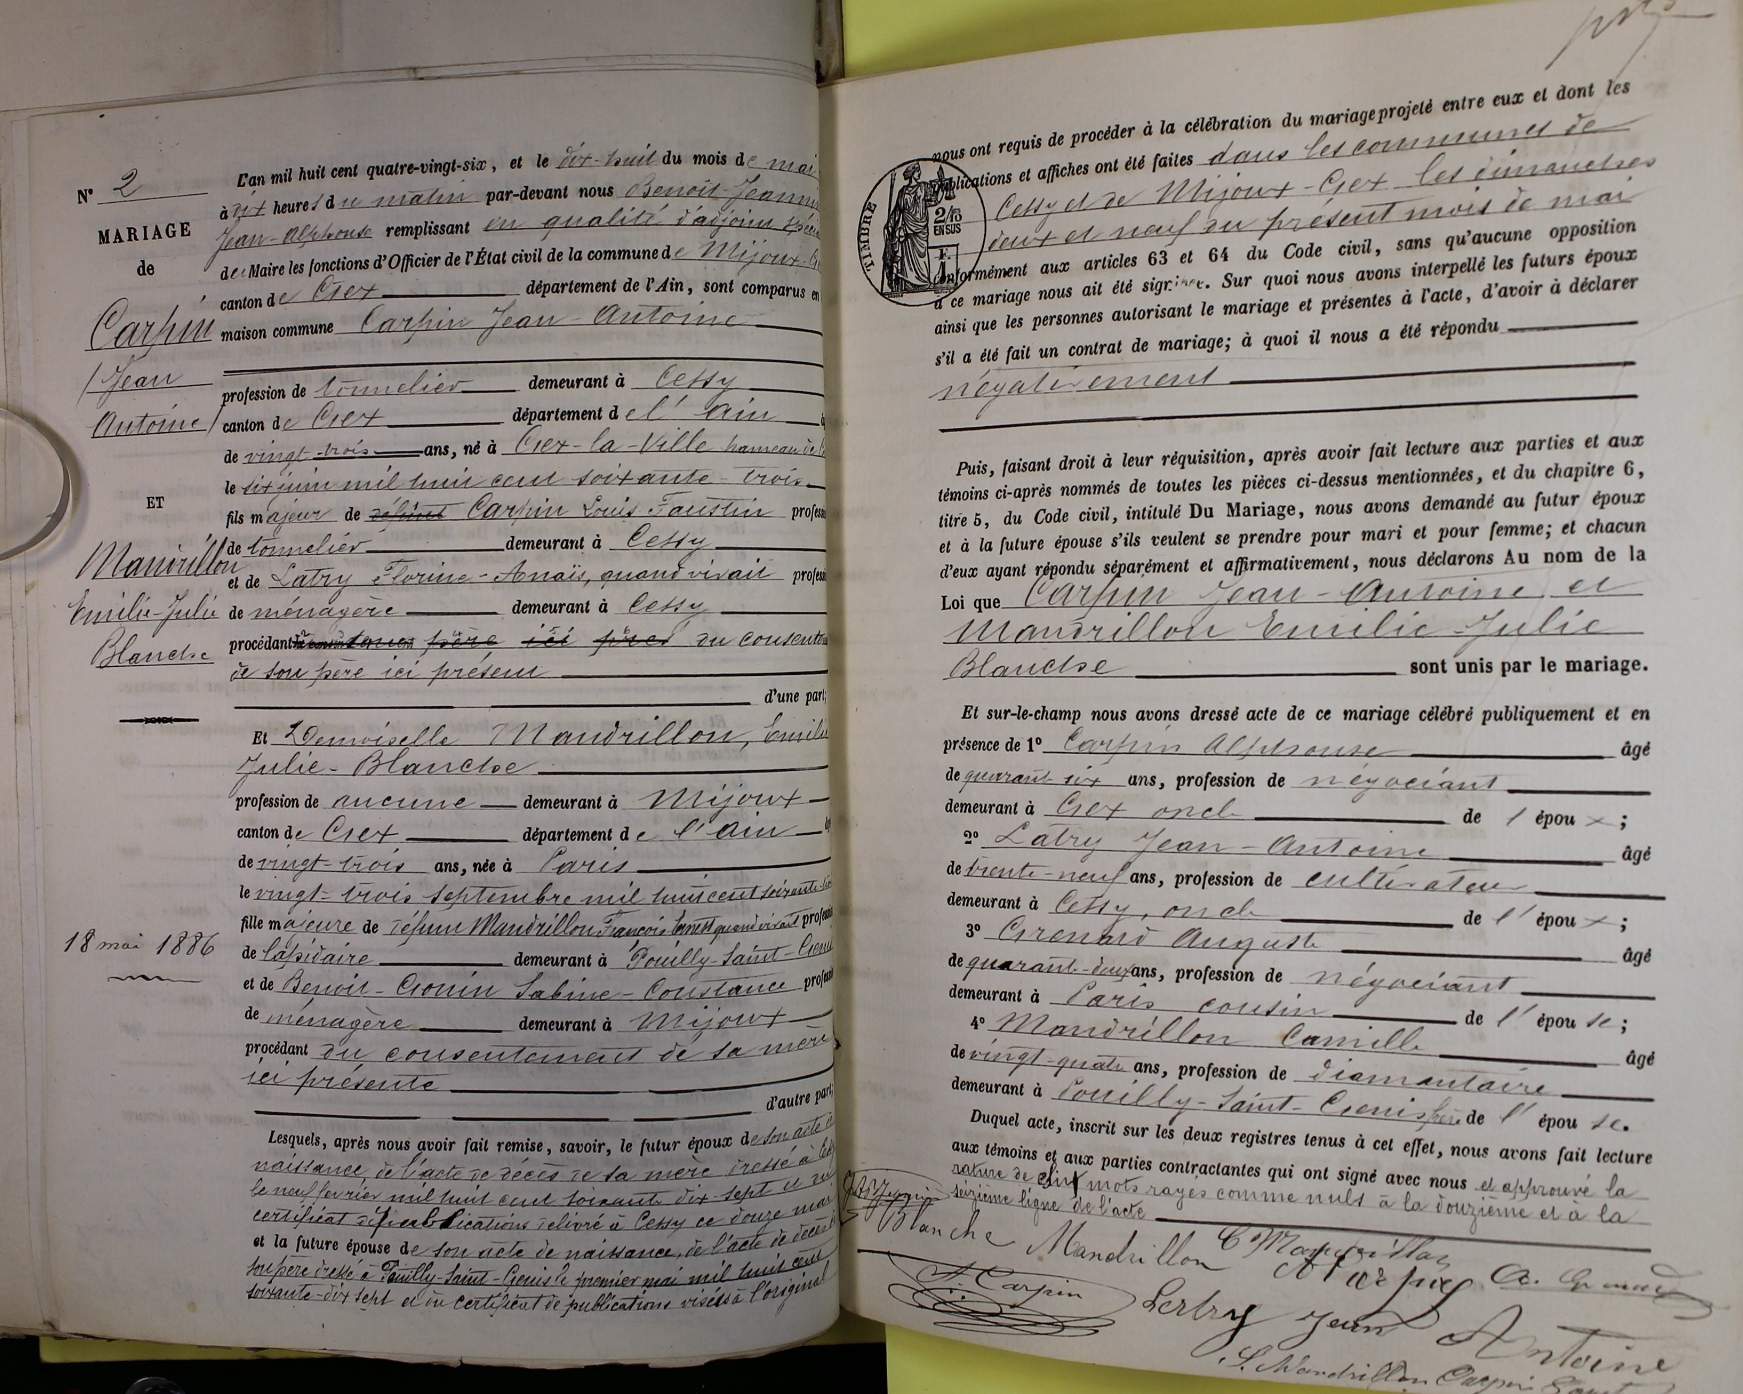 N° 2
MARIAGE
de
Carpin
Jean
Antoine
ET
Mandrillon
Emilie-Julie
Blanche
18 mai 1886
L'an mil huit cent quatre-vingt-six, et le dix-huit du mois de mai
à dix heures du matin par-devant nous Benoit-Jeannin
Jean-Alphonse remplissant en qualité d'adjoint spécial
de Maire les fonctions d'Officier de l'État civil de la commune de Mijoux-
canton de Gex département de l'Ain, sont comparus en
maison commune Carpin Jean-Antoine
profession de tonnelier demeurant à Cessy
canton de Gex département de l'Ain
de vingt-trois ans, né à Gex-la-Ville hameau de
le six juin mil huit cent soixante-trois
fils majeur de défunt Carpin Louis Faustin profess
de tonnelier demeurant à Cessy
et de Latry Florine-Anaïs, quand vivait profess
de ménagère demeurant à Cessy
procédant père ici du consent
de son père ici présent
d'une part;
Et Demoiselle Mandrillon, Emilie
Julie-Blanche
profession de aucune demeurant à Mijoux
canton de Gex département de l'Ain
de vingt-trois ans, née à Paris
le vingt-trois septembre mil huit cent soixante
fille majeure de défunt Mandrillon François quand vivait profess
de lapidaire demeurant à Pouilly-Saint-Genis
et de Benoit-Gonin Sabine-Constance profess
de ménagère demeurant à Mijoux
procédant du consentement de sa mère
ici présente
d'autre part;
Lesquels, après nous avoir fait remise, savoir, le futur époux de son acte de
naissance, de l'acte de décès de sa mère dressé à Cessy
le neuf février mil huit cent soixante-dix-sept et du
certificat de publications délivré à Cessy ce douze mai
et la future épouse de son acte de naissance, de l'acte de décès de
son père dressé à Pouilly-Saint-Genis le premier mai mil huit cent
soixante-dix sept et du certificat de publications visés à l'original
nous ont requis de procéder à la célébration du mariage projeté entre eux et dont les
publications et affiches ont été faites dans les communes de
Cessy et de Mijoux-Gex les dimanches
deux et neuf du présent mois de mai
TIMBRE
2/10
EN SUS
conformément aux articles 63 et 64 du Code civil, sans qu'aucune opposition
à ce mariage nous ait été signifiée. Sur quoi nous avons interpellé les futurs époux
ainsi que les personnes autorisant le mariage et présentes à l'acte, d'avoir à déclarer
s'il a été fait un contrat de mariage; à quoi il nous a été répondu
négativement
Puis, faisant droit à leur réquisition, après avoir fait lecture aux parties et aux
témoins ci-après nommés de toutes les pièces ci-dessus mentionnées, et du chapitre 6,
titre 5, du Code civil, intitulé Du Mariage, nous avons demandé au futur époux
et à la future épouse s'ils veulent se prendre pour mari et pour femme; et chacun
d'eux ayant répondu séparément et affirmativement, nous déclarons Au nom de la
Loi que Carpin Jean-Antoine et
Mandrillon Emilie-Julie
Blanche sont unis par le mariage.
Et sur-le-champ nous avons dressé acte de ce mariage célébré publiquement et en
présence de 1° Carpin Alphonse âgé
de quarante six ans, profession de négociant
demeurant à Gex oncle de l'époux;
2° Latry Jean-Antoine âgé
de trente-neuf ans, profession de cultivateur
demeurant à Cessy, oncle de l'époux;
3° Grenard Auguste âgé
de quarante-deux ans, profession de négociant
demeurant à Paris cousin de l'épouse;
4° Mandrillon Camille âgé
de vingt-quatre ans, profession de diamantaire
demeurant à Pouilly-Saint-Genis frère de l'épouse.
Duquel acte, inscrit sur les deux registres tenus à cet effet, nous avons fait lecture
aux témoins et aux parties contractantes qui ont signé avec nous et approuvé la
rature de cinq mots rayés comme nuls à la douzième et à la
seizième ligne de l'acte
Blanche Mandrillon C Mandrillon
J. Carpin
Jean Antoine
S. Mandrillon Carpin